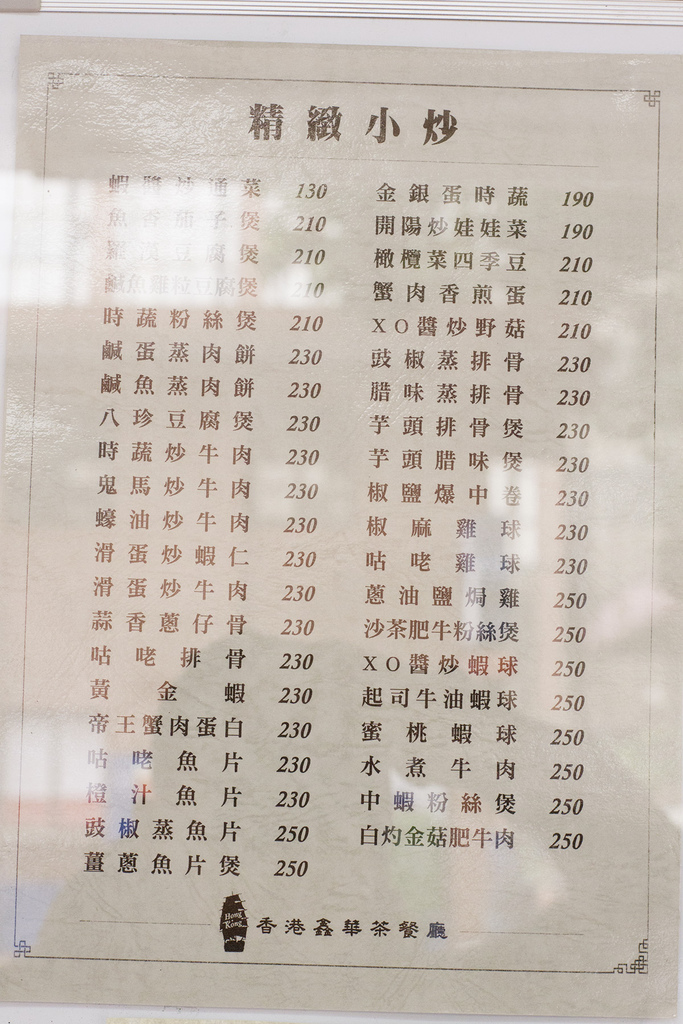 精緻小炒
蝦醬炒通菜 130
魚香茄子煲 210
羅漢豆腐煲 210
鹹魚雞粒豆腐煲 210
時蔬粉絲煲 210
鹹蛋蒸肉餅 230
鹹魚蒸肉餅 230
八珍豆腐煲 230
時蔬炒牛肉 230
鬼馬炒牛肉 230
蠔油炒牛肉 230
滑蛋炒蝦仁 230
滑蛋炒牛肉 230
蒜香蔥仔骨 230
咕咾排骨 230
黃金蝦 230
帝王蟹肉蛋白 230
咕咾魚片 230
橙汁魚片 230
豉椒蒸魚片 250
薑蔥魚片煲 250
金銀蛋時蔬 190
開陽炒娃娃菜 190
橄欖菜四季豆 210
蟹肉香煎蛋 210
XO醬炒野菇 210
豉椒蒸排骨 230
腊味蒸排骨 230
芋頭排骨煲 230
芋頭腊味煲 230
椒鹽爆中卷 230
椒麻雞球 230
咕咾雞球 230
蔥油鹽焗雞 250
沙茶肥牛粉絲煲 250
XO醬炒蝦球 250
起司牛油蝦球 250
蜜桃蝦球 250
水煮牛肉 250
中蝦粉絲煲 250
白灼金菇肥牛肉 250
Hong
Kong
香港鑫華茶餐廳